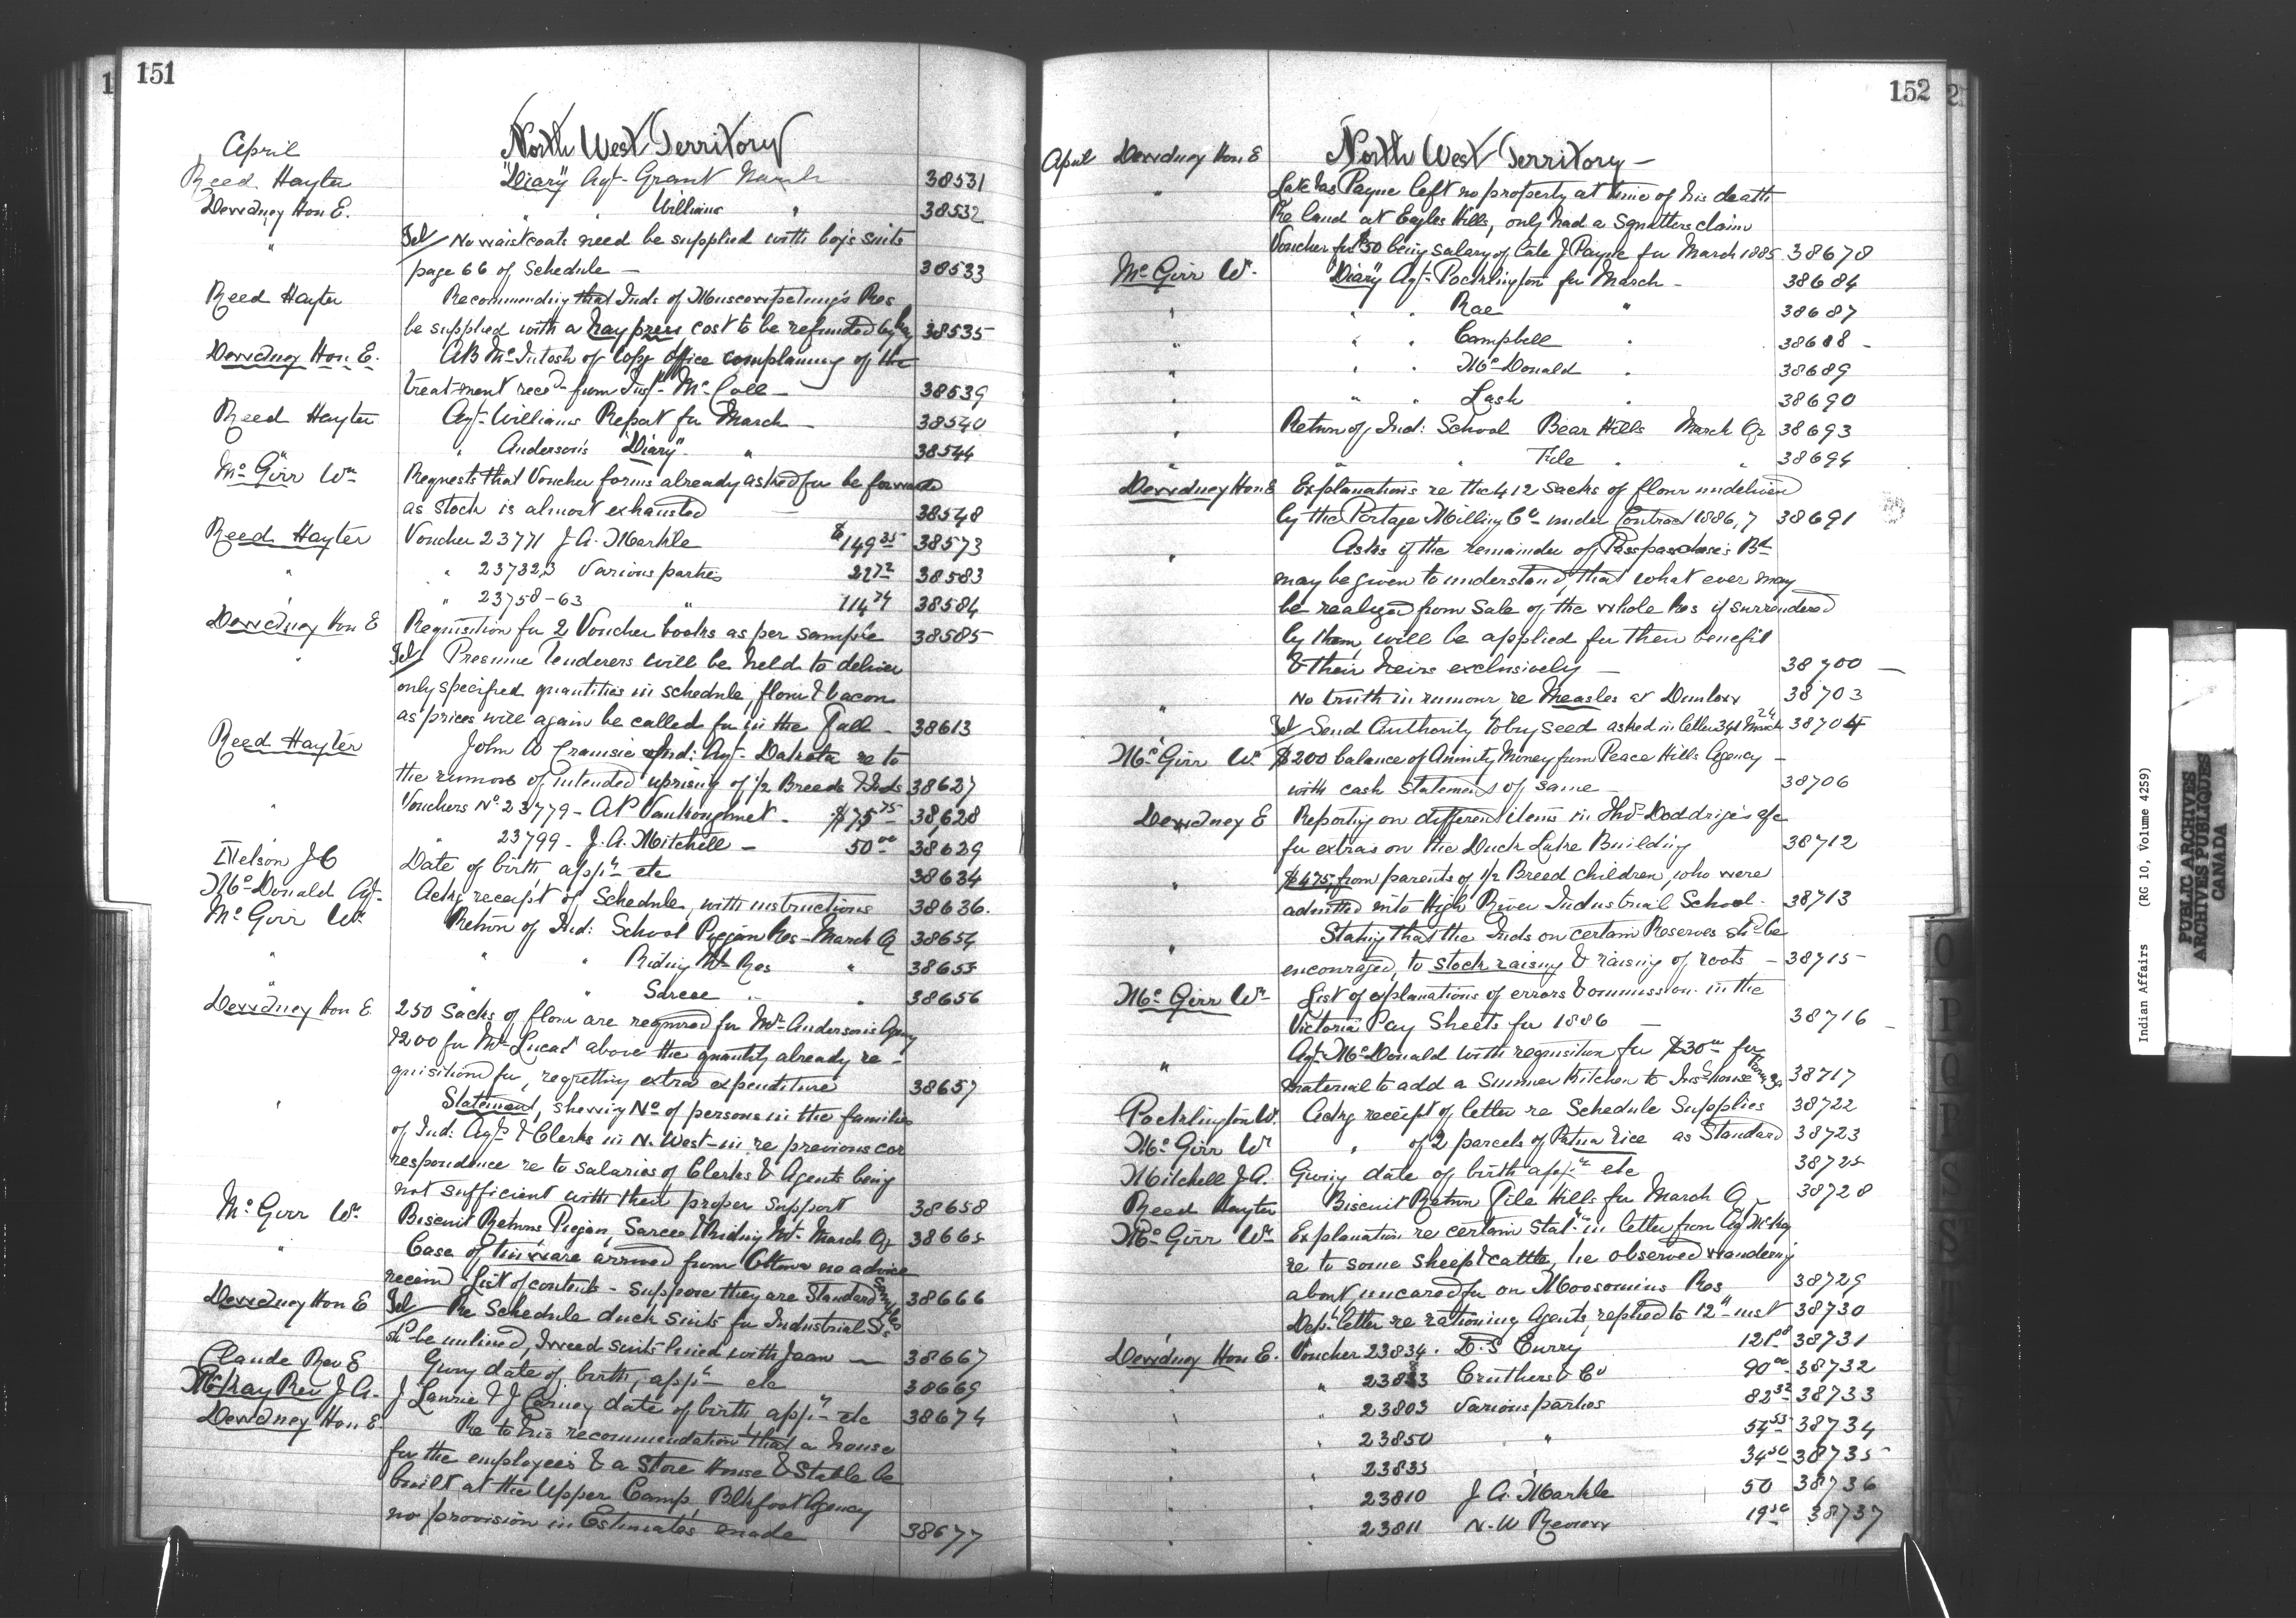 151
North West Territory
April
Reed Hayter "Diary" Agt. Grant March 38531
Dewdney Hon E. " " Williams " 38532
" Tel/ No waistcoats need be supplied with boys suits
page 66 of Schedule — 38533
Reed Hayter Recommending that Inds of Muscowpetung's Res
be supplied with a hay press cost to be refunded by 38535
Dewdney Hon E. AB McIntosh of Copg office complaining of the
treatment recd from Inspr McColl — 38539
Reed Hayter Agt. Williams Report for March — 38540
" " Anderson's "Diary" " 38544
Mc Girr Wm Requests that Voucher forms already asked for be forwarded
as stock is almost exhausted — 38548
Reed Hayter Voucher 23771 J. A. Markle $149 35 38573
" " 23732,3 Various parties 27 72 38583
" 23758-63 " 114 74 38584
Dewdney Hon E Requisition for 2 Voucher books as per sample 38585
" Tel/ Presume Tenderers will be held to deliver
only specified quantities in schedule, flour & bacon
as prices will again be called for in the Fall — 38613
Reed Hayter John W Cramsie Ind: Agt. Dakota re to
the rumors of intended uprising of 1/2 Breeds & Inds 38627
" Vouchers No 23779 - A P Vankoughnet - $75 75 38,628
" 23799 - J. A. Mitchell — 50 00 38629
Nelson J C Date of birth appt etc 38634
McDonald Agt. Ackg receipt of Schedule, with instructions 38636.
Mc Girr Wm Return of Ind: School Piegan Res - March Qr 38654
" " " Riding Mt. Res " 38655
" " " Sarcee " " 38656
Dewdney Hon E. 250 Sacks of flour are required for Mr Anderson's Agency
& 200 for Mr Lucas above the quantity already re-
quisitioned for, regretting extra expenditure 38657
" Statement, shewing No of persons in the families
of Ind: Agts & Clerks in N. West - in re previous cor
respondence re to salaries of Clerks & Agents being
not sufficient with their proper support 38658
Mc Girr Wm Biscuit Returns Piegan, Sarcee & Riding Mt. March Qr 38665
" Case of tinware arrived from Ottawa no advice
received - List of contents - Suppose they are Standard Samples 38666
Dewdney Hon E Tel/ Re Schedule duck suits for Industrial Sls
shd be unlined, tweed suits lined with Jean — 38667
Claude Rev E Giving date of birth, appt etc 38669
McKay Rev J. A. J Lawrie & J Carney date of birth, appt etc 38674
Dewdney Hon E. Re to his recommendation that a house
for the employees & a Store House & Stable be
built at the Upper Camp, Blkfoot Agency
no provision in Estimates made 38677
152
April Dewdney Hon E North West Territory —
" Late Jas Payne left no property at time of his death
Re land at Eagles Hills, only had a squatters claim
Voucher for $50 being salary of late J Payne for March 1885 38678
Mc Girr Wm. "Diary" Agt. Pocklington for March — 38684
" " " Rae " 38687
" " " Campbell " 38688 -
" " " McDonald " 38689
" " " Lash " 38690
" Return of Ind: School Bear Hills March Qr 38693
" " " File " " 38694
Dewdney Hon E Explanations re the 412 sacks of flour undelivered
by the Portage Milling Co under Contract 1886,7 38691
" Asks if the remainder of Passpasschase's Bd
may be given to understand, that what ever may
be realized from Sale of the whole Res if surrendered
by them, will be applied for their benefit
& their heirs exclusively — 38700 —
" No truth in rumour re Measles at Dunbow 38703
" Tel/ Send Authority to buy seed asked in letter 341 24 March 38704
Mc Girr Wm $200 balance of Annuity Money from Peace Hills Agency —
with cash Statements of same — 38706
Dewdney E Reporting on different items in Thos Doddrige's a/c
for extras on the Duck Lake Building 38712
" $475, from parents of 1/2 Breed children, who were
admitted into High River Industrial School - 38713
" Stating that the Inds on certain Reserves shd be
encouraged, to stock raising & raising of roots — 38715
Mc Girr Wm List of explanations of errors & omission in the
Victoria Pay Sheets for 1886 — 38716 -
" Agt. McDonald with requisition for $30 00 for
material to add a Summer Kitchen to Ins house 38717
Pocklington W. Ackg receipt of letter re Schedule Supplies 38722
Mc Girr Wm " of 2 parcels of Patna rice as Standard 38723
Mitchell J A. Giving date of birth appt etc 38725
Reed Hayter Biscuit Return File Hills for March Qr 38728
Mc Girr Wm Explanation re certain Statmt in letter from Agt McKay
re to some sheep & cattle, he observed wandering
about, uncared for on Moosomins Res 38729
Dept letter re rationing Agents, replied to 12th inst 38730
Dewdney Hon E. Voucher 23834. D. S Curry 121 00 38731
" " 23833 Cruthers & Co 90 00 38732
" " 23803 Various parties 82 32 38733
" " 23850 " 54 53 38734
" " 23835 34 50 38735
" " 23810 J A. Markle 50 38736
" " 23811 N. W Review 19 50 38737
Indian Affairs (RG 10, Volume 4259)
PUBLIC ARCHIVES
ARCHIVES PUBLIQUES
CANADA